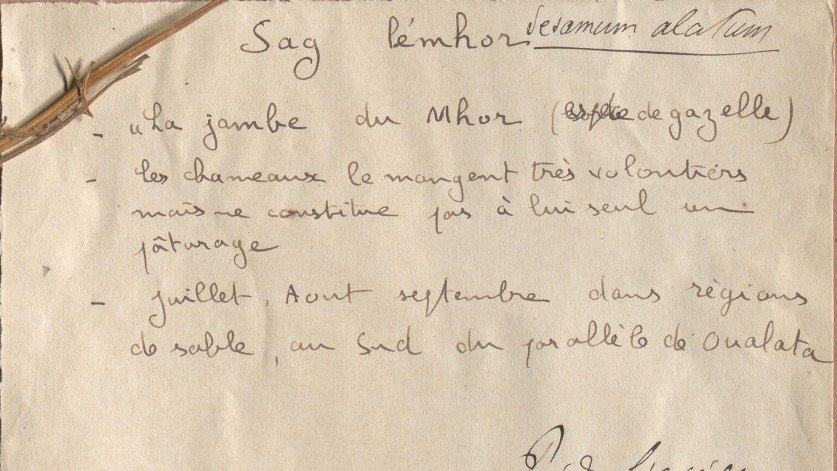 Sag lémhor Sesamum alatum
- "La jambe du Mhor (espèce de gazelle)
- les chameaux le mangent très volontiers
mais ne constitue pas à lui seul un
pâturage
- juillet, Aout septembre dans règions
de sable, au Sud du parallèle de Oualata